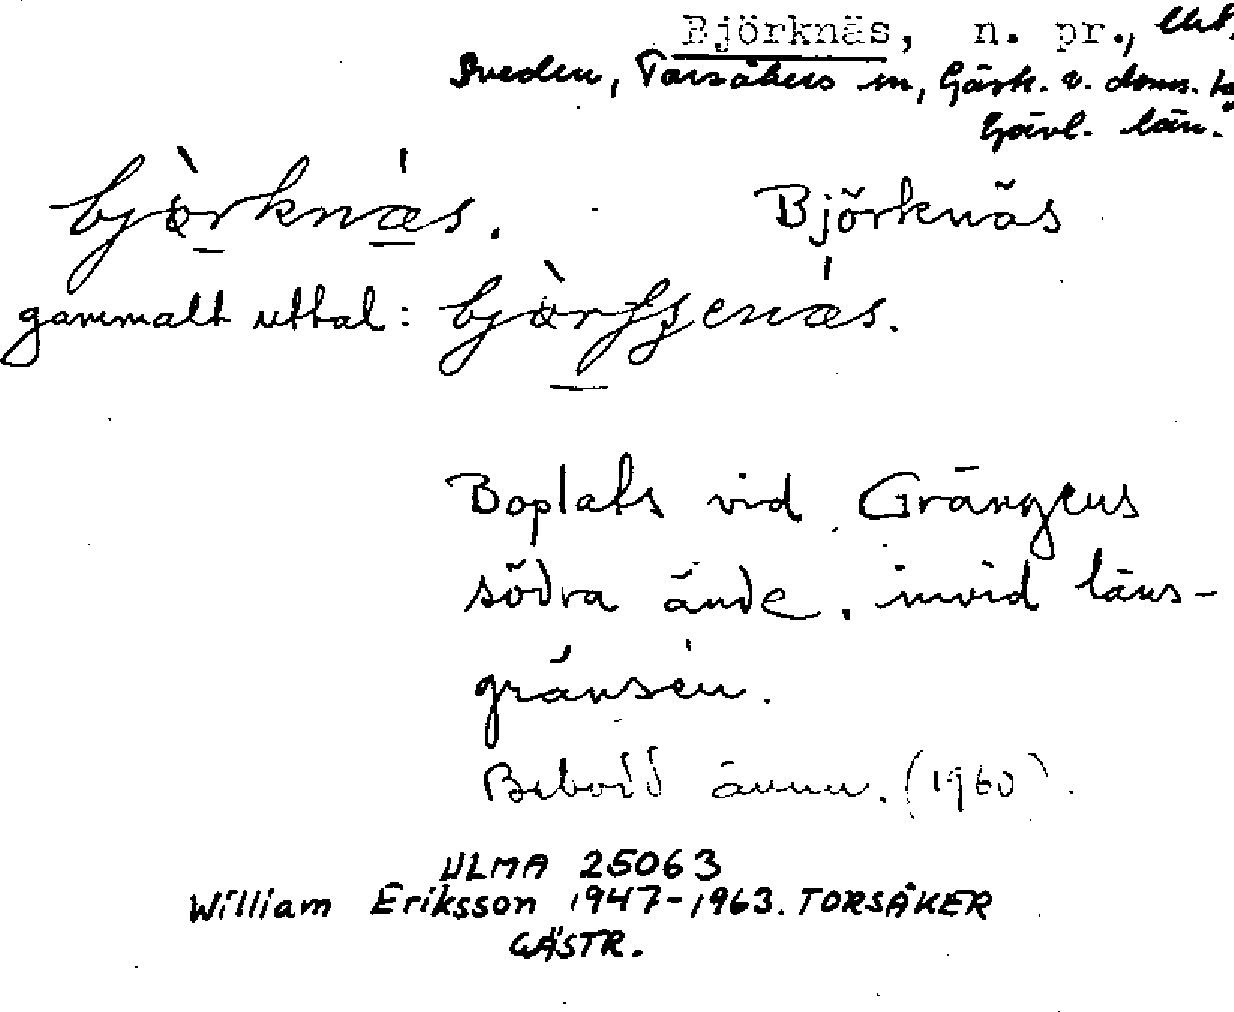 Björknäs, n. pr.,
Sveden, Torsåkers sn, Gästr. ö. doms.
Gävl. län.
bjòrknä́s. Björknäs
gammalt uttal:
Boplats vid Grängens
södra ände, invid läns-
gränsen.
Bebodd ännu. (1960).
ULMA 25063
William Eriksson 1947-1963. TORSÅKER
GÄSTR.